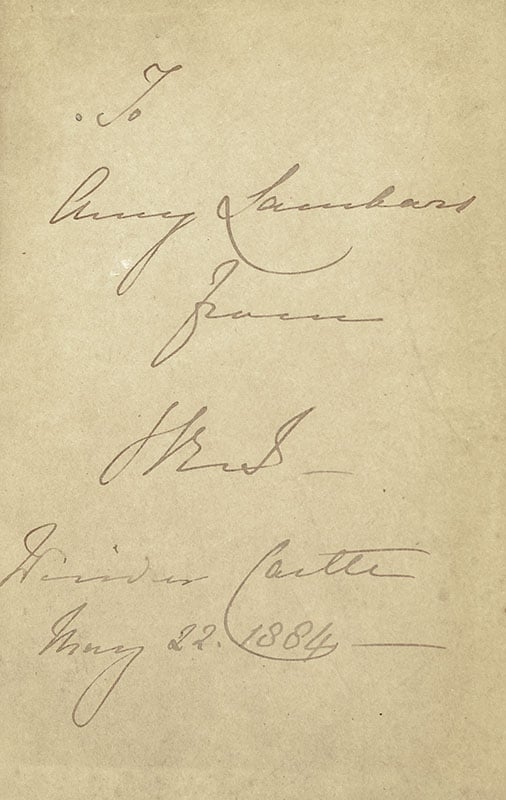 To
Amy Lambart
from
VR&I —
Windsor Castle
May 22. 1884 —